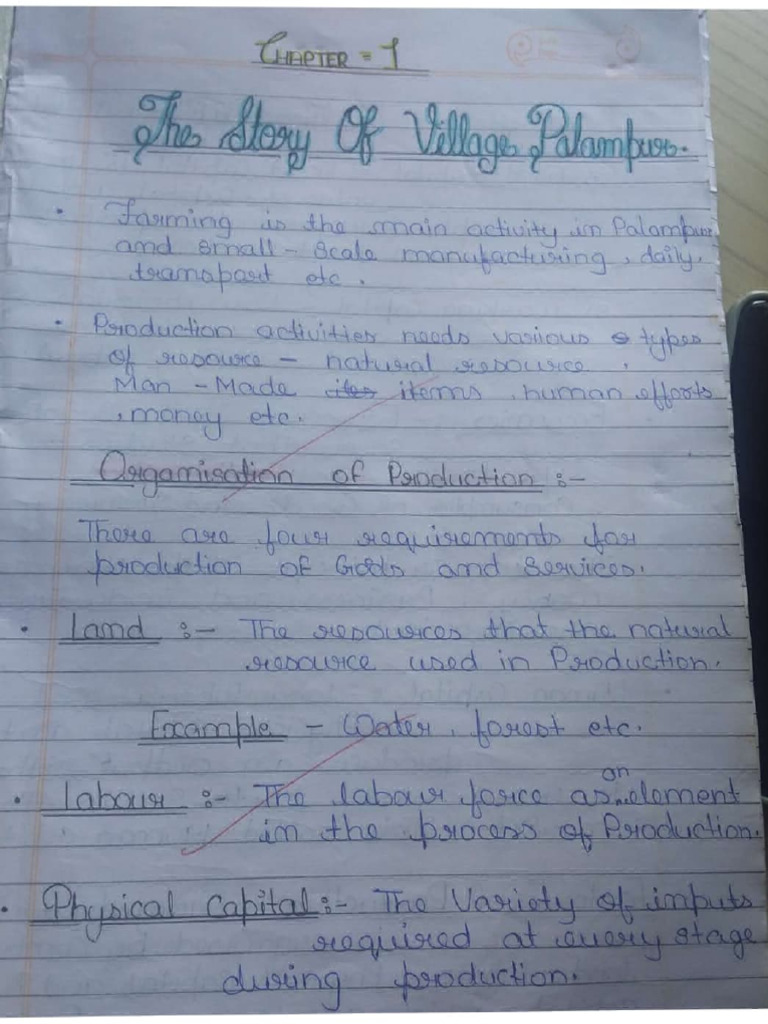 CHAPTER = 1
The Story Of Village Palampur.
• Farming is the main activity in Palampur
and small - scale manufacturing , daily,
transport etc .
• Production activities needs various types
of resource - natural resource ,
Man - Made items , human efforts
, money etc.
Organisation of Production :-
There are four requirements for
production of Goods and Services.
• Land :- The resources that the natural
resource used in Production.
Example - Water , forest etc.
• Labour :- The labour force as an element
in the process of Production.
• Physical Capital :- The Variety of inputs
required at every stage
during production.